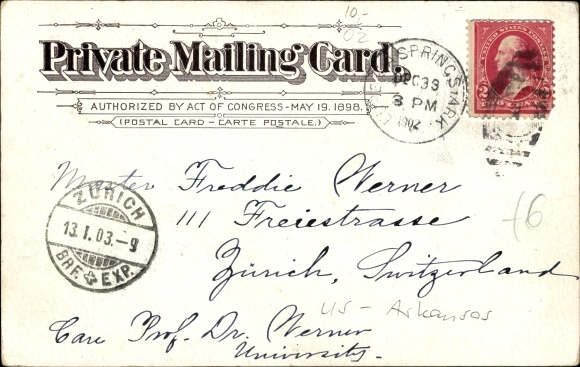 10-
02
Private Mailing Card.
AUTHORIZED BY ACT OF CONGRESS-MAY 19, 1898.
(POSTAL CARD - CARTE POSTALE.)
SPRINGS ARK
3 PM
1902
Master Freddie Werner
111 Freiestrasse
Zürich, Switzerland
ZÜRICH
13.I.03.-9
BRF. EXP.
+6
US - Arkansas
Care Prof. Dr. Werner
University.